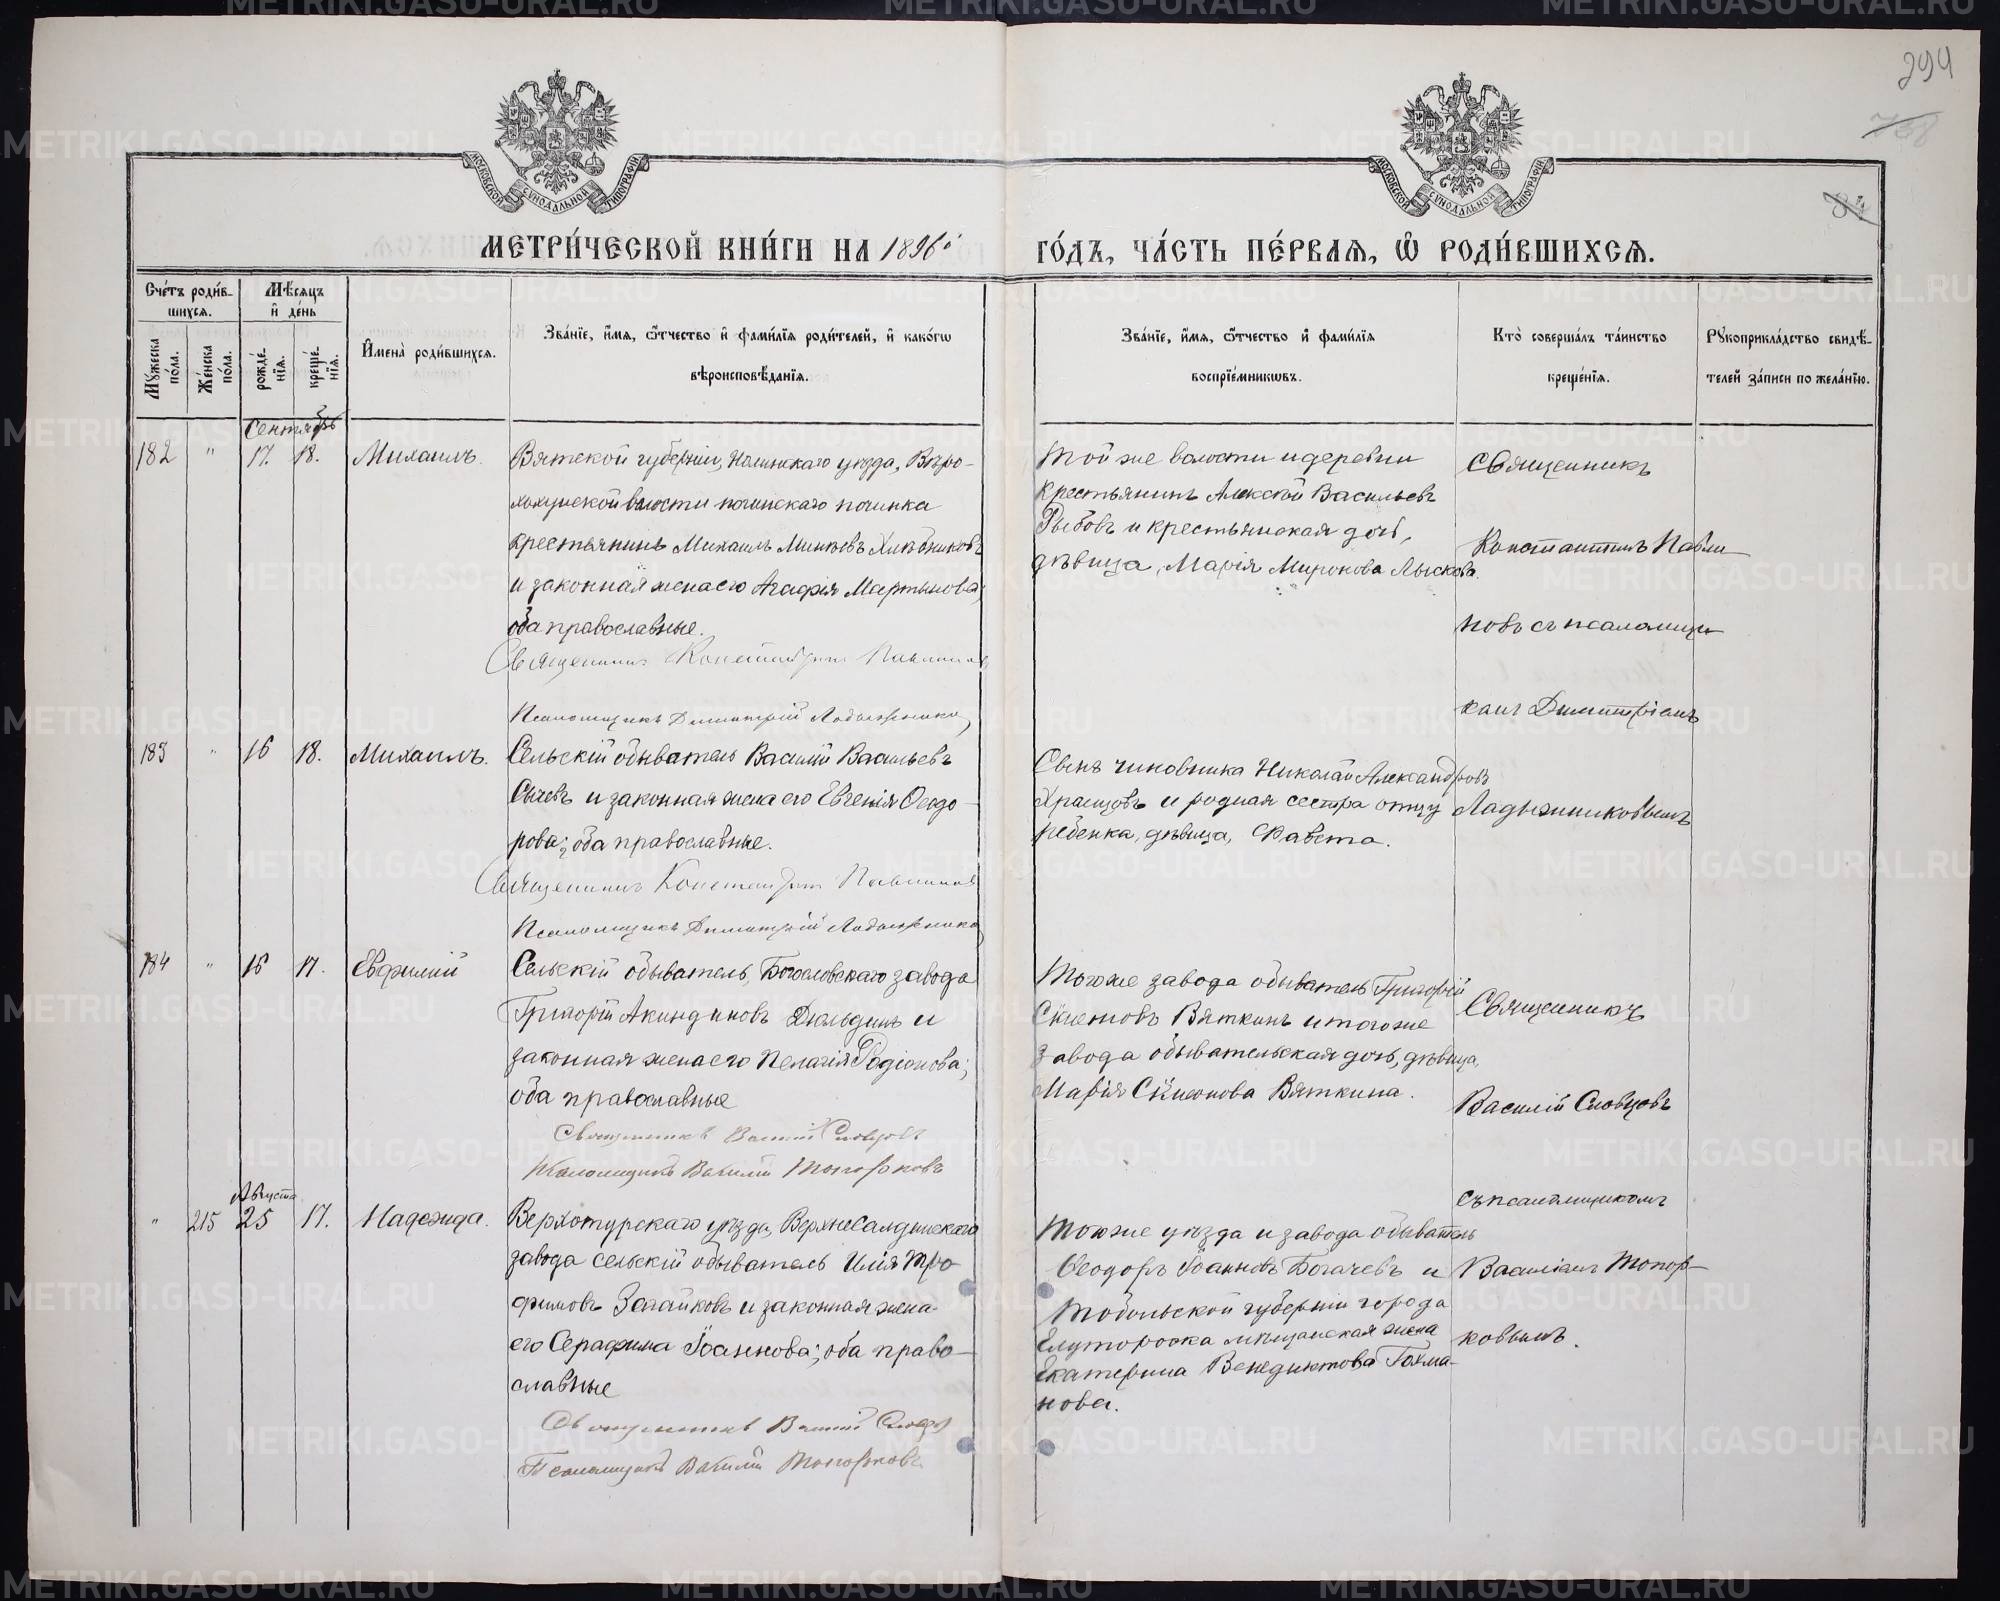 294
МОСКОВСКОЙ СѴНОДАЛЬНОЙ ТИПОГРАФІИ
МОСКОВСКОЙ СѴНОДАЛЬНОЙ ТИПОГРАФІИ
МЕТРИ́ЧЕСКОЙ КНИ́ГИ НА 1896й
ГО́ДЪ, ЧА́СТЬ ПЕ́РВАЯ, Ѽ РОДИ́ВШИХСЯ.
Сче́тъ роди́в-
шихся.
Мѣ́сяцъ
и де́нь
Мꙋ́жеска по́ла.
Же́нска по́ла.
рожде́нїя.
креще́нїя.
И҆мена̀ роди́вшихся.
Зва́нїе, и҆́мя, ѻ҆́тчество и҆ фами́лїя роди́телей, и҆ како́гѡ
вѣроисповѣ́данїя.
Зва́нїе, и҆́мя, ѻ҆́тчество и҆ фами́лїя
воспрїе́мникѡвъ.
Кто̀ соверша́лъ та́инство
креще́нїя.
Рꙋкоприкла́дство свидѣ́-
телей за́писи по жела́нїю.
Сентябрь
182 " 17. 18. Михаилъ.
Вятской губерніи, Нолинскаго уѣзда,
волости починка
крестьянинъ Михаилъ Хлѣбниковъ
и законная жена его Агафія Мартынова;
оба православные.
Священникъ Константинъ Павлиновъ
Псаломщикъ Димитрій Ладыжниковъ
Той же волости и деревни
крестьянинъ Алексѣй Васильевъ
Рыбовъ и крестьянская дочь,
дѣвица, Марія Миронова Лыскова.
Священникъ
Константинъ Павли-
новъ съ псаломщи-
комъ Димитріемъ
Ладыжниковымъ
183 " 16 18. Михаилъ.
Сельскій обыватель Василій Васильевъ
Сычевъ и законная жена его Евгенія Ѳеодо-
рова; оба православные.
Священникъ Константинъ Павлиновъ
Псаломщикъ Димитрій Ладыжниковъ
Сынъ чиновника Николай Александровъ
Храмцовъ и родная сестра отцу
ребенка, дѣвица, Фавста.
184 " 16 17. Евфимій
Сельскій обыватель, Богословскаго завода
Григорій Акиндиновъ Дюльдинъ и
законная жена его Пелагія Родіонова;
оба православные
Священникъ Василій Словцовъ
Псаломщикъ Василій Топорковъ
Того же завода обыватель Григорій
Сѵмеоновъ Вяткинъ и того же
завода обывательская дочь, дѣвица,
Марія Сѵмеонова Вяткина.
Священникъ
Василій Словцовъ
съ псаломщикомъ
Василіемъ Топор-
ковымъ.
Августа
" 215 25 17. Надежда.
Верхотурскаго уѣзда, Верхнесалдинскаго
завода сельскій обыватель Илія Тро-
фимовъ Загайновъ и законная жена
его Серафима Іоаннова; оба право-
славные
Священникъ Василій Словцовъ
Псаломщикъ Василій Топорковъ
Того же уѣзда и завода обыватель
Ѳеодоръ Іоанновъ Богачевъ и
Тобольской губерніи города
Ялуторовска мѣщанская жена
Екатерина Венедиктова Гохма-
нова.
METRIKI.GASO-URAL.RU